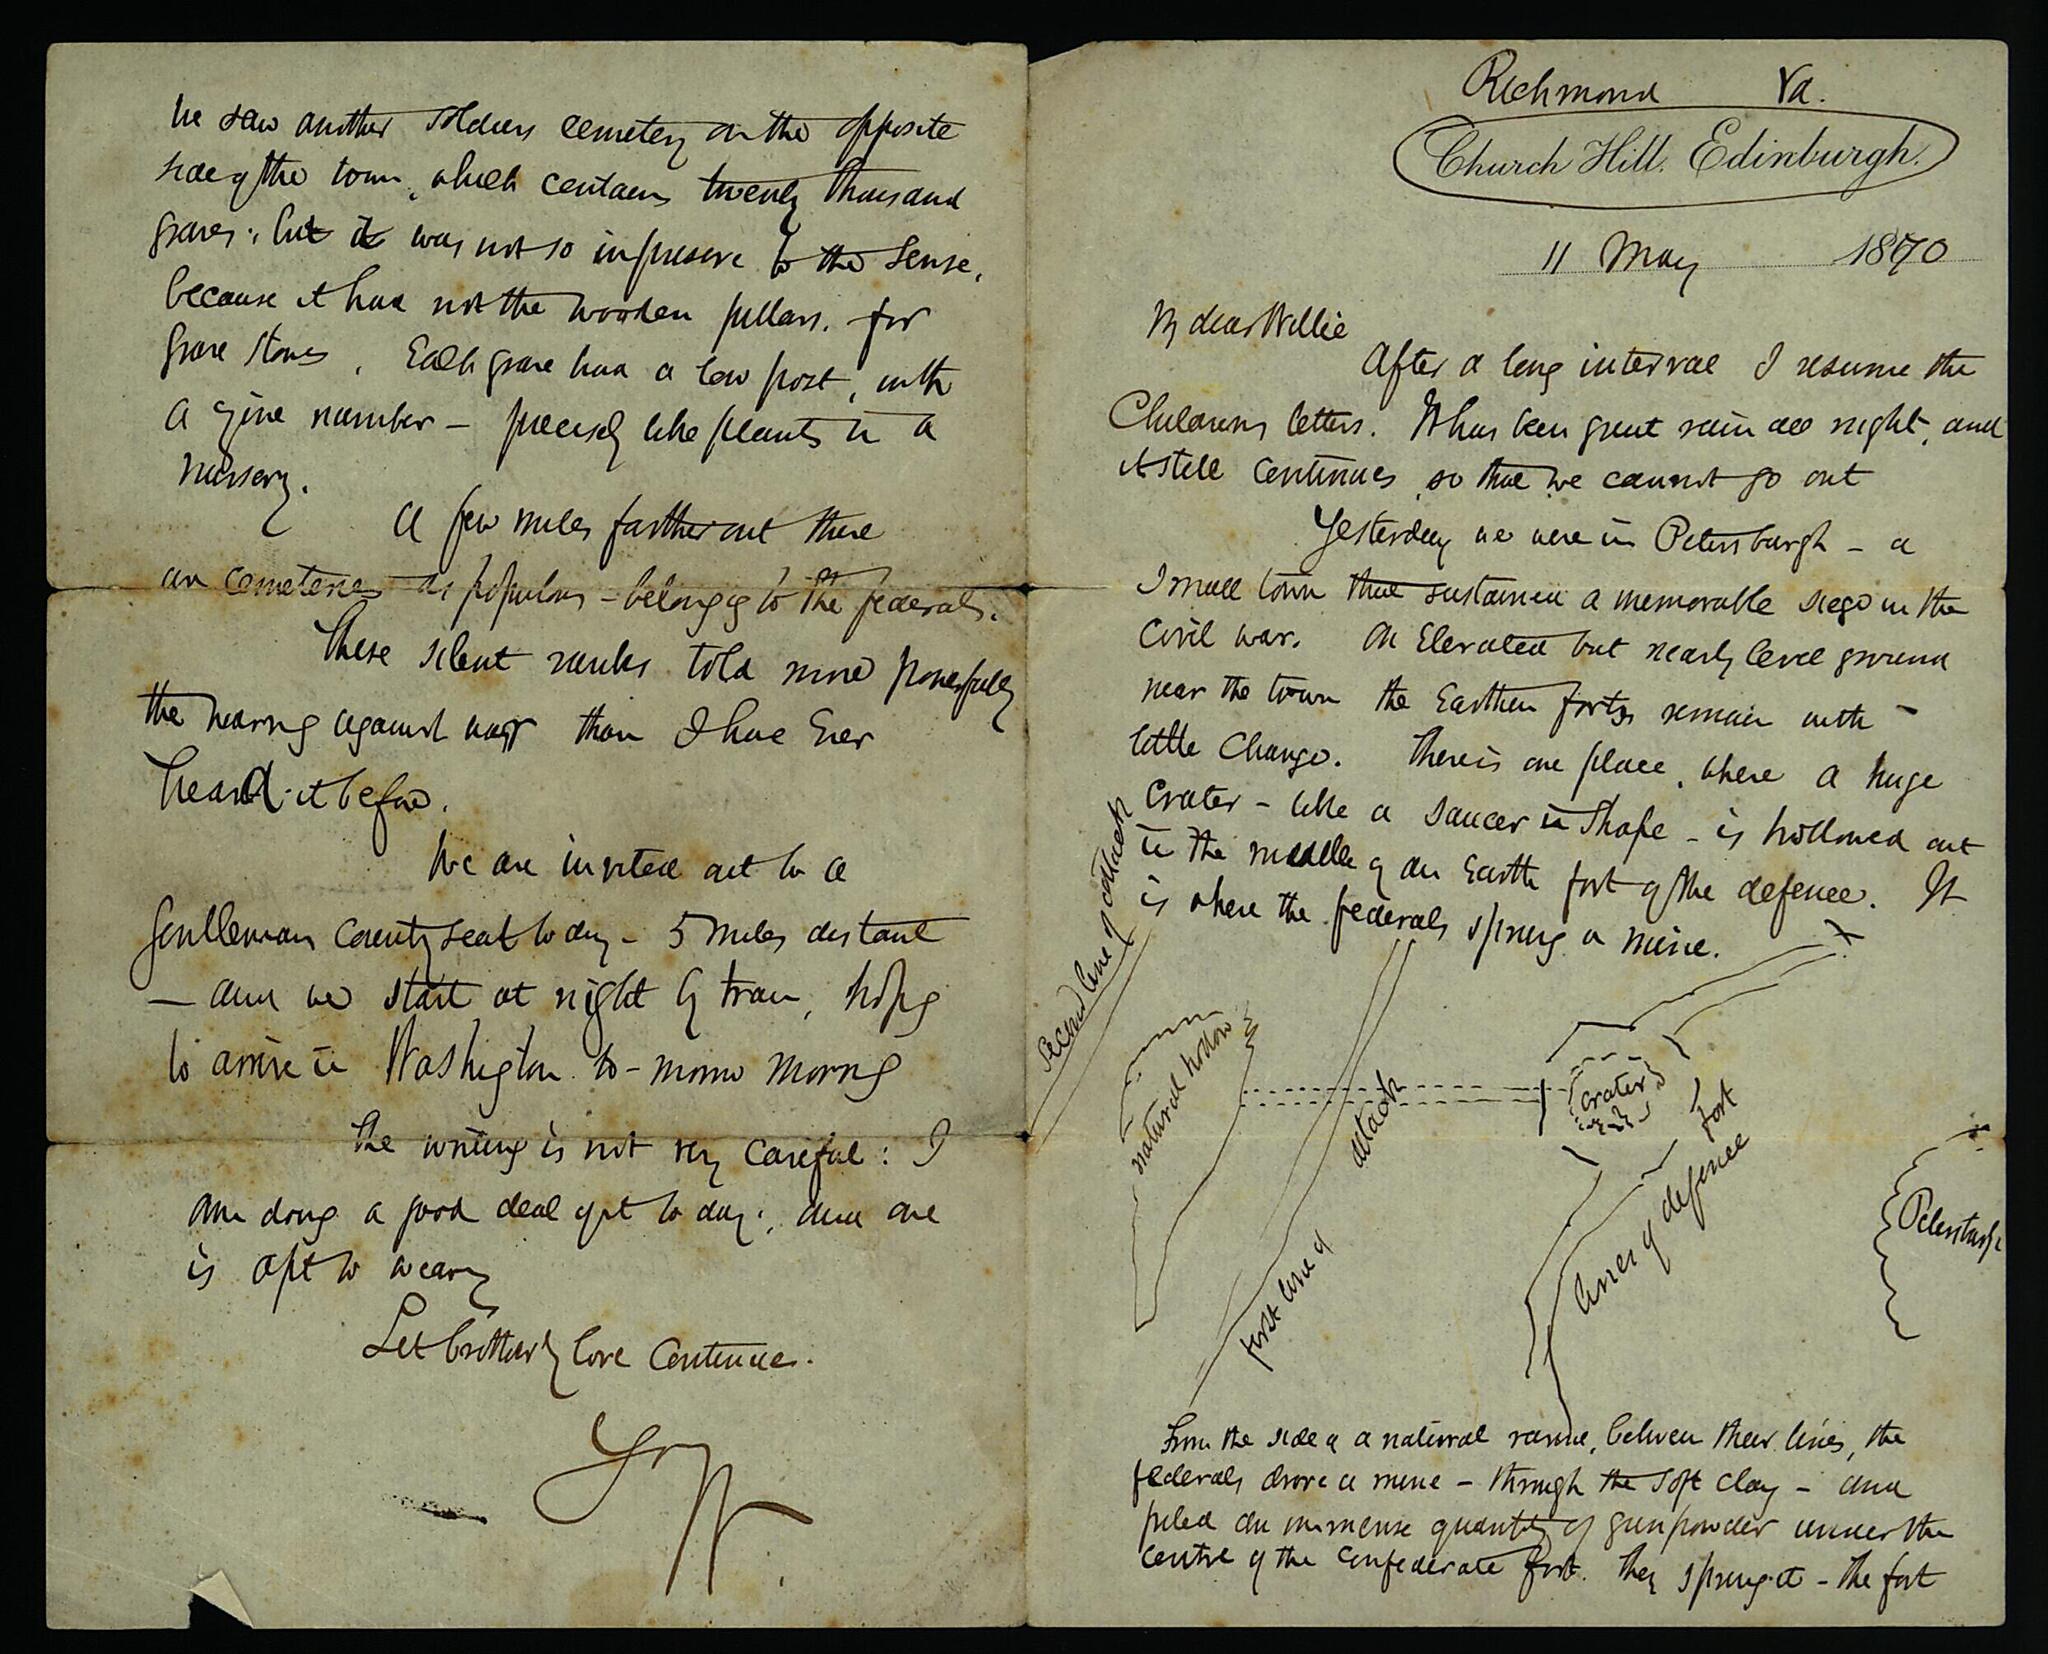 Richmond Va.
Church Hill. Edinburgh.
11 May 1870
My dear Willie
After a long interval I resume the
Childrens letters. It has been great rain all night, and
it still continues, so that we cannot go out
Yesterday we were in Petersburgh - a
small town that sustained a memorable siege in the
Civil War. On Elevated but nearly level ground
near the town the Earthen forts remain with
little Change. There is one place, where a huge
Crater - like a Saucer in Shape - is hollowed out
in the middle of an Earth fort of the defence. It
is where the federals sprung a mine.
Second line of attack
natural hollow
first line of attack
Crater
fort
lines of defence
Petersburgh
From the side of a natural ravine, between their lines, the
federals drove a mine - through the soft clay - and
piled an immense quantity of gunpowder under the
centre of the Confederate fort. They sprung it - the fort
We saw another Soldiers cemetery on the opposite
side of the town, which contains twenty thousand
graves; but it was not so impressive to the sense,
because it had not the wooden pillars. for
grave stones. Each grave had a low post, with
a number - precisely like plants in a
Nursery.
A few miles farther out there
are cemeteries as populous - belonging to the federals.
These silent ranks told more powerfully
the against war than I have Ever
heard it before.
We are invited out to a
Gentlemans County seat to day - 5 miles distant
- and we start at night by train, hoping
to arrive in Washington to-morrow morng
The writing is not very careful: I
am doing a good deal of it to day; and one
is apt to weary
Let brotherly love Continue.